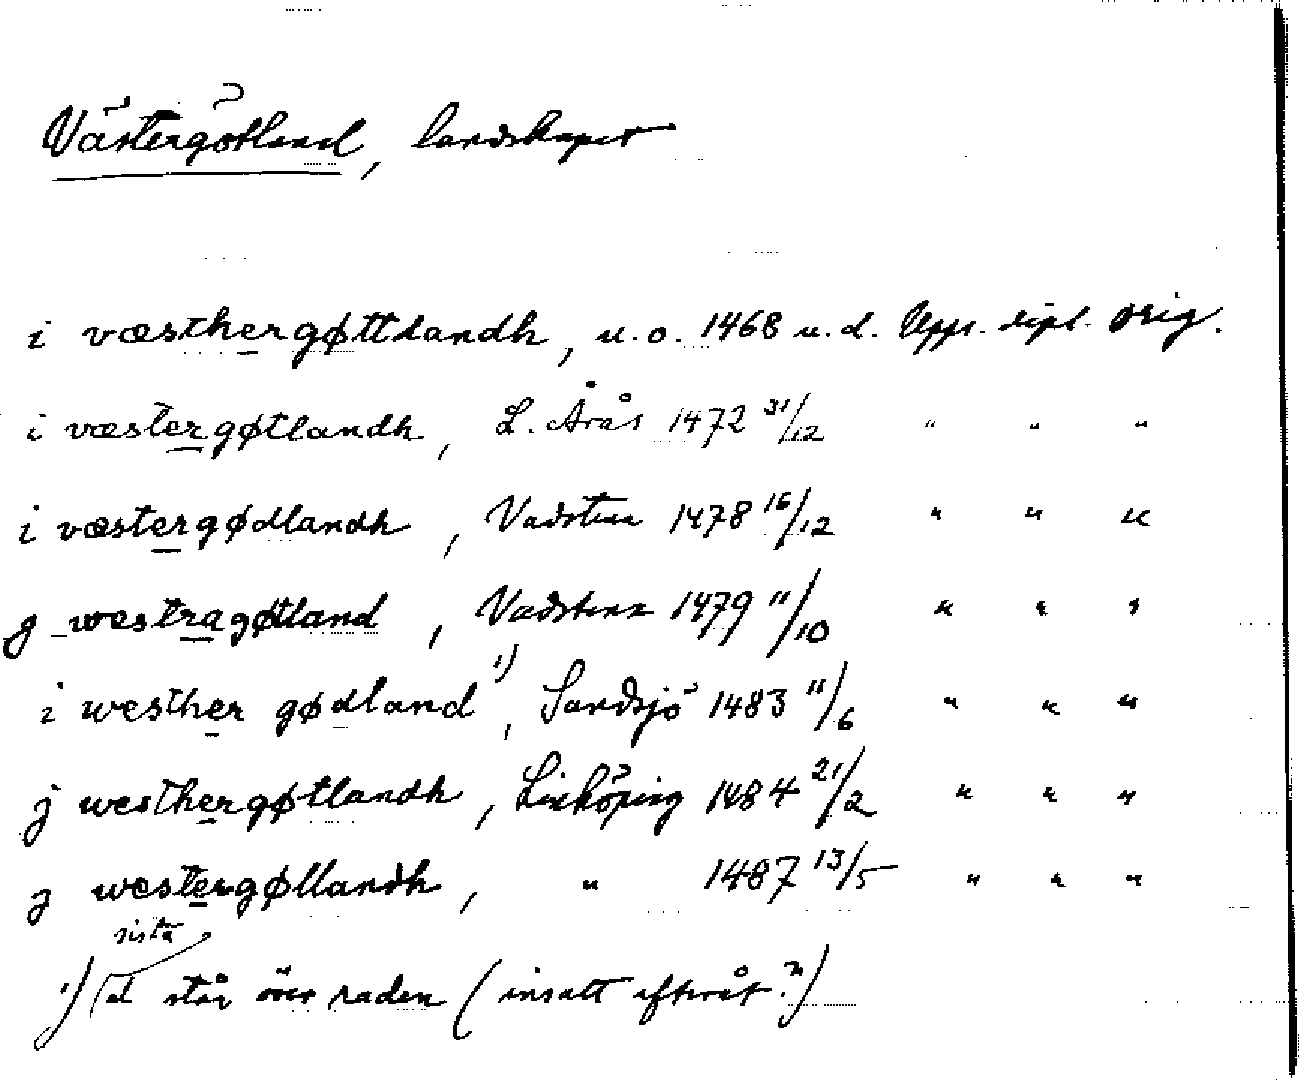 Västergötland, landskapet
i væsthergøttlandh, u.o. 1468 u.d. Upps. dipl. orig.
i væstergøtlandh, L. Årås 1472 31/12 " " "
i væstergødlandh, Vadstena 1478 16/12 " " "
g westragøtland, Vadstena 1479 11/10 " " "
i westher gødland 1), Sandsjö 1483 11/6 " " "
j westhergøtlandh, Linköping 1484 21/2 " " "
j westergøllandh, " 1487 13/5 " " "
sista
1) d står över raden (insatt efteråt?)